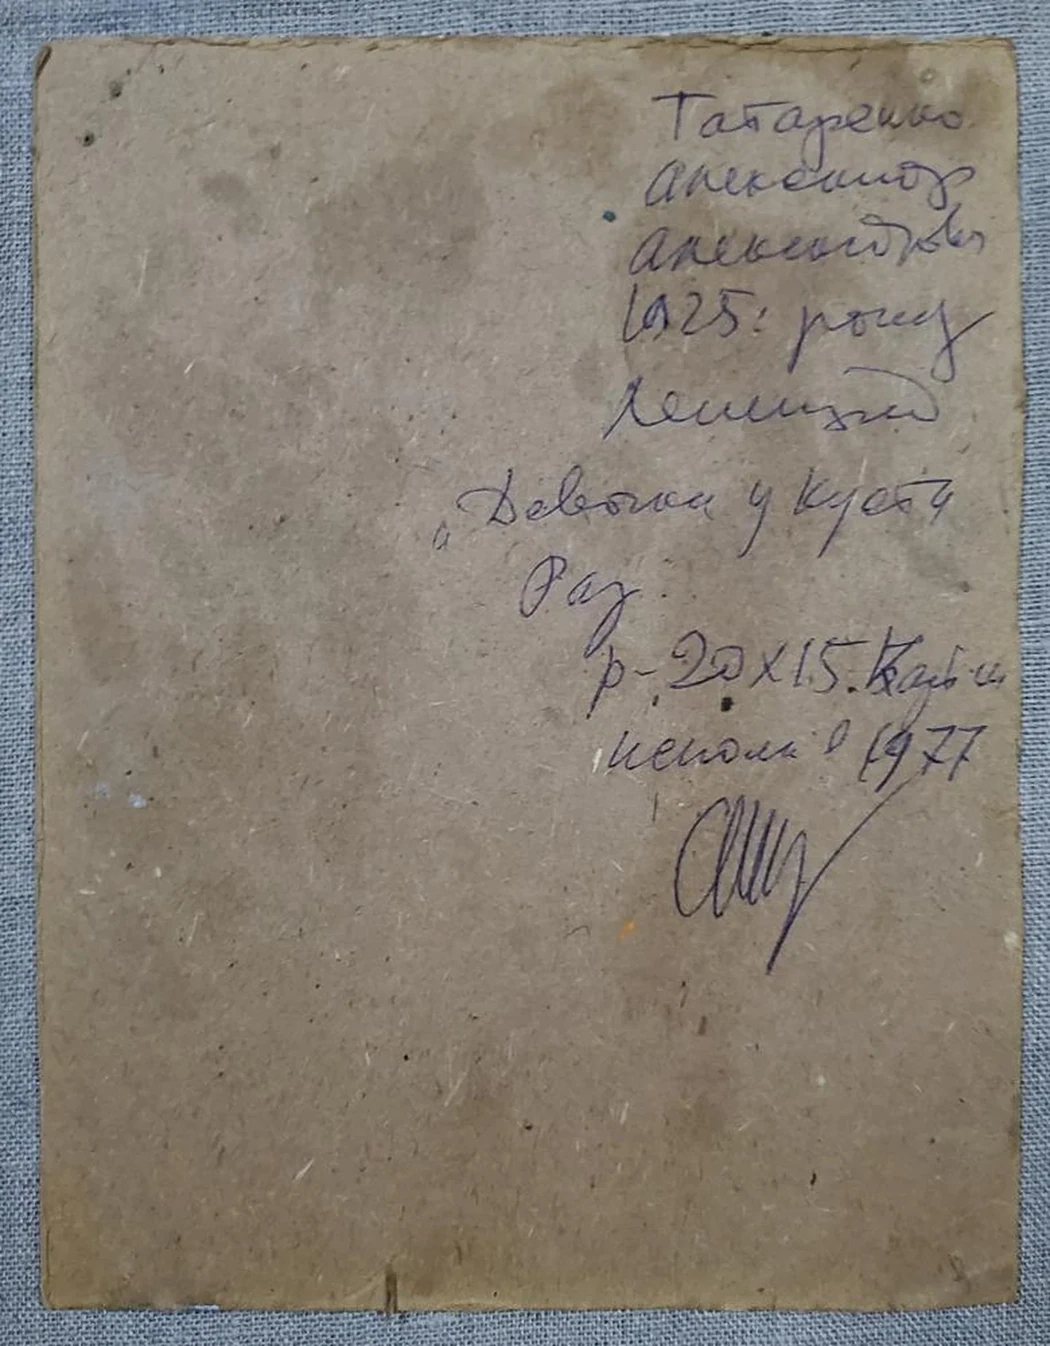 Татаренко
Александр
Александрович
1925: року
Ленинград
„Девочка у куста
Роз
р-20х15. Карт-н
исполн в 1977